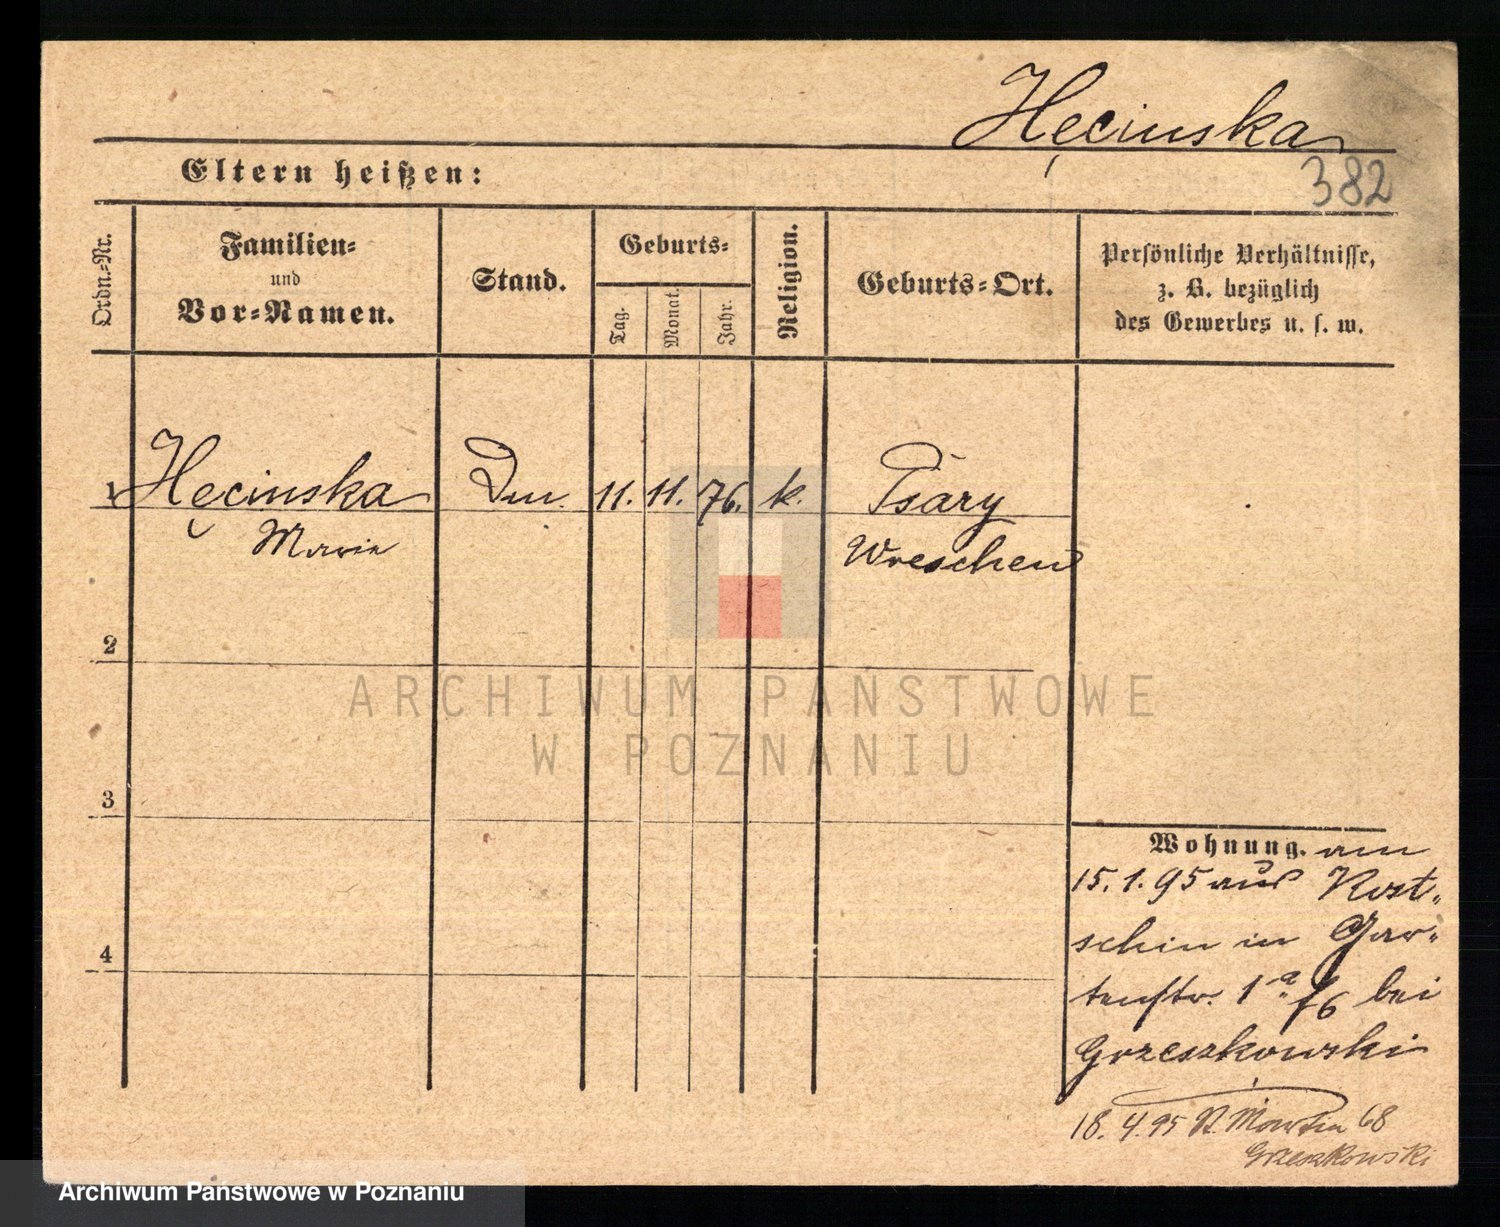 Hęcinska
382
Eltern heißen:
Ordn.-Nr.
Familien-
und
Vor-Namen.
Stand.
Geburts-
Tag.
Monat.
Jahr.
Religion.
Geburts-Ort.
Persönliche Verhältnisse,
z. B. bezüglich
des Gewerbes u. s. w.
1 Hęcinska 11. 11. 76. k. Psary
Marie Wreschen
2
3
4
Wohnung. am
15.1.95 aus Kost-
schin in Gar-
tenstr. 1a bei
Grzeszkowski
18.4.95 St. Martin 68
Grzeszkowski
ARCHIWUM PAŃSTWOWE
W POZNANIU
Archiwum Państwowe w Poznaniu